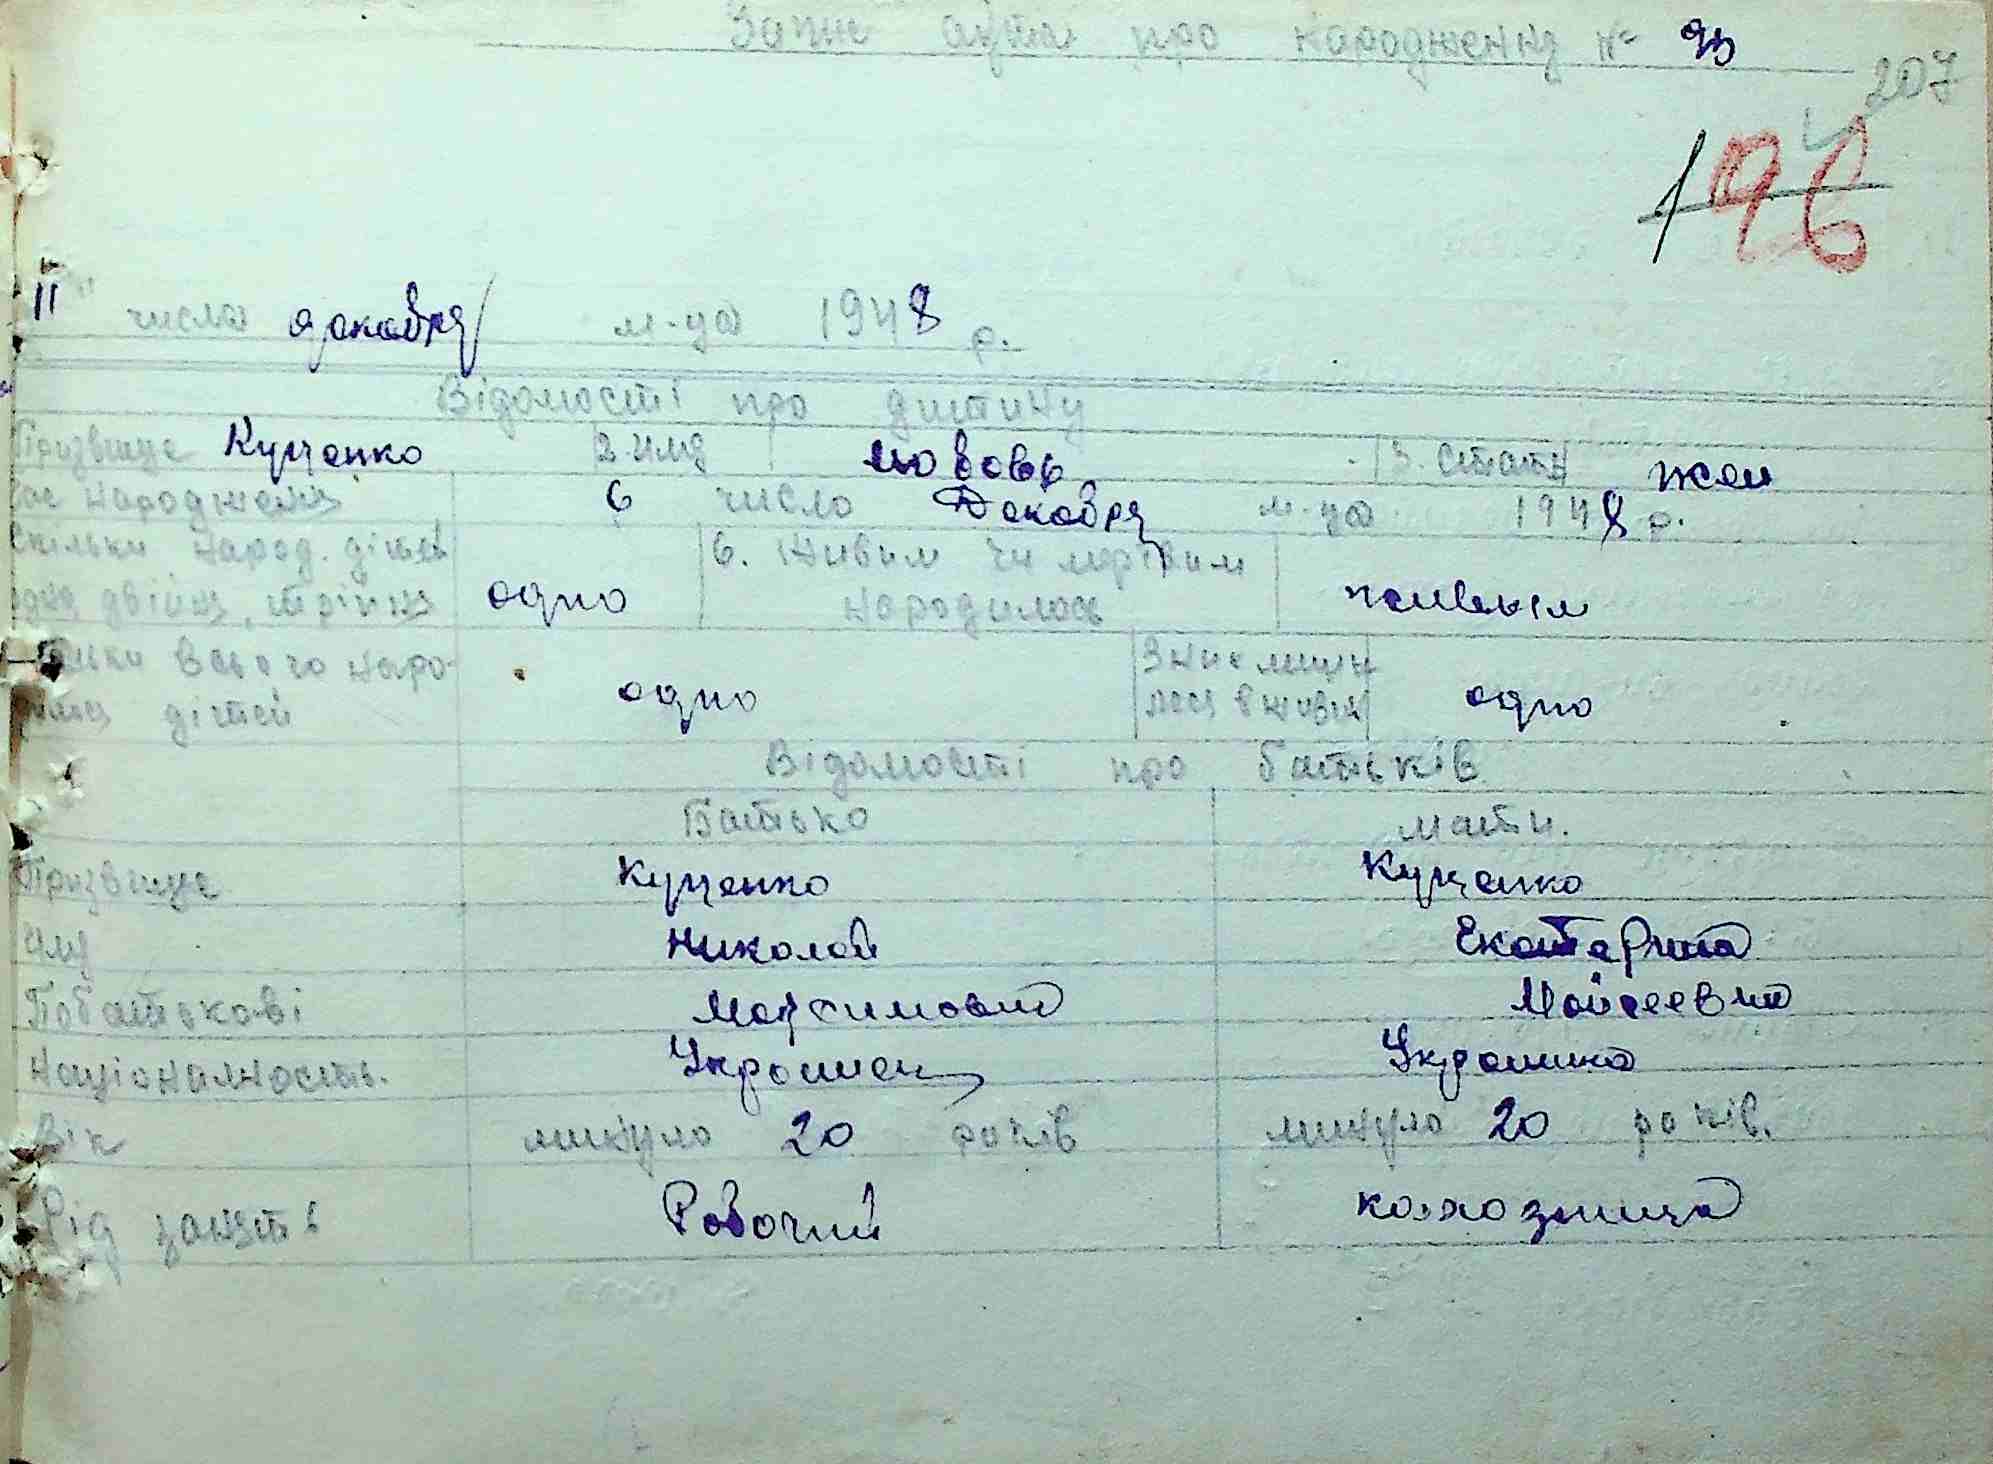 Запис акта про народження № 93
207
196
"11" числа декабря м-ця 1948 р.
Відомості про дитину
Призвище Куценко 2. имя Любовь 3. стать жен
час народження 6 число Декабря м-ця 1948 р.
скільки народ. дітей 6. Живим чи мертвим
одна, двійня, трійня одно народилось живым
всього наро- З них лиши-
дітей одно лося в живих одно
Відомості про батьків
Батько мати.
Призвище Куценко Куценко
имя Николай Екатерина
Побатькові Максимович Мойсеевна
Національность. Украинец Украинка
Вік минуло 20 років минуло 20 років.
Рід занять Робочий колхозница